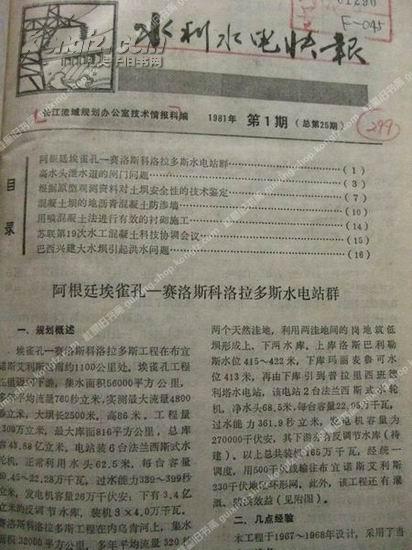 01290
F-045
水利水电快报
长江流域规划办公室技术情报科编 1981年 第1期（总第25期）
299
目录
阿根廷埃雀孔—赛洛斯科洛拉多斯水电站群……（1）
高水头泄水道的闸门问题……（3）
根据原型观测资料对土坝安全性的技术鉴定……（7）
混凝土坝的地沥青混凝土防渗墙……（10）
用喷混凝土法进行有效的衬砌施工……（14）
苏联第19次水工混凝土科技协调会议……（15）
巴西兴建大水坝引起洪水问题……（16）
阿根廷埃雀孔—赛洛斯科洛拉多斯水电站群
一、规划概述
埃雀孔—赛洛斯科洛拉多斯工程在布宜
诺斯艾利斯西南约1100公里处，埃雀孔工程
集水面积56000平方公里，
平均流量760秒立米，实测最大流量4800
秒立米，大坝长2500米，高86米，工程量
万立米，最大库面816平方公里，总库
容 亿立米，电站装6台法兰西斯式水
轮机，正常利用水头62.5米，每台容量
—22.28万千瓦，过水能力339～399秒
立米，发电机容量26万千伏安；下有3.4亿
立米的反调节水库，装机3×4.0万千瓦。
赛洛斯科洛拉多斯工程在内乌肯河上，集水
面积32000平方公里，多年平均流量320秒
两个天然洼地，利用两洼地间的岗地筑低
坝形成上、下两水库，上库洛斯巴利勒
斯水位415～422米，下库玛丽麦鲁可水
位413米，再由下库引到普拉里西班德
利塔水电站，该电站2台法兰西斯式水轮
机，净水头68.5米，每台容量22.95万千瓦，
过水能力361.9秒立米，发电机容量为
270000千伏安，其下游亦有反调节水库（待
建）。以上总共装机165万千瓦，经统一
调度，用500千伏线输往布宜诺斯艾利斯
230千伏地区环形网。此外，该工程还有灌
溉、防洪效益（见附图）。
二、几点经验
本工程于1967～1968年设计，采用了当